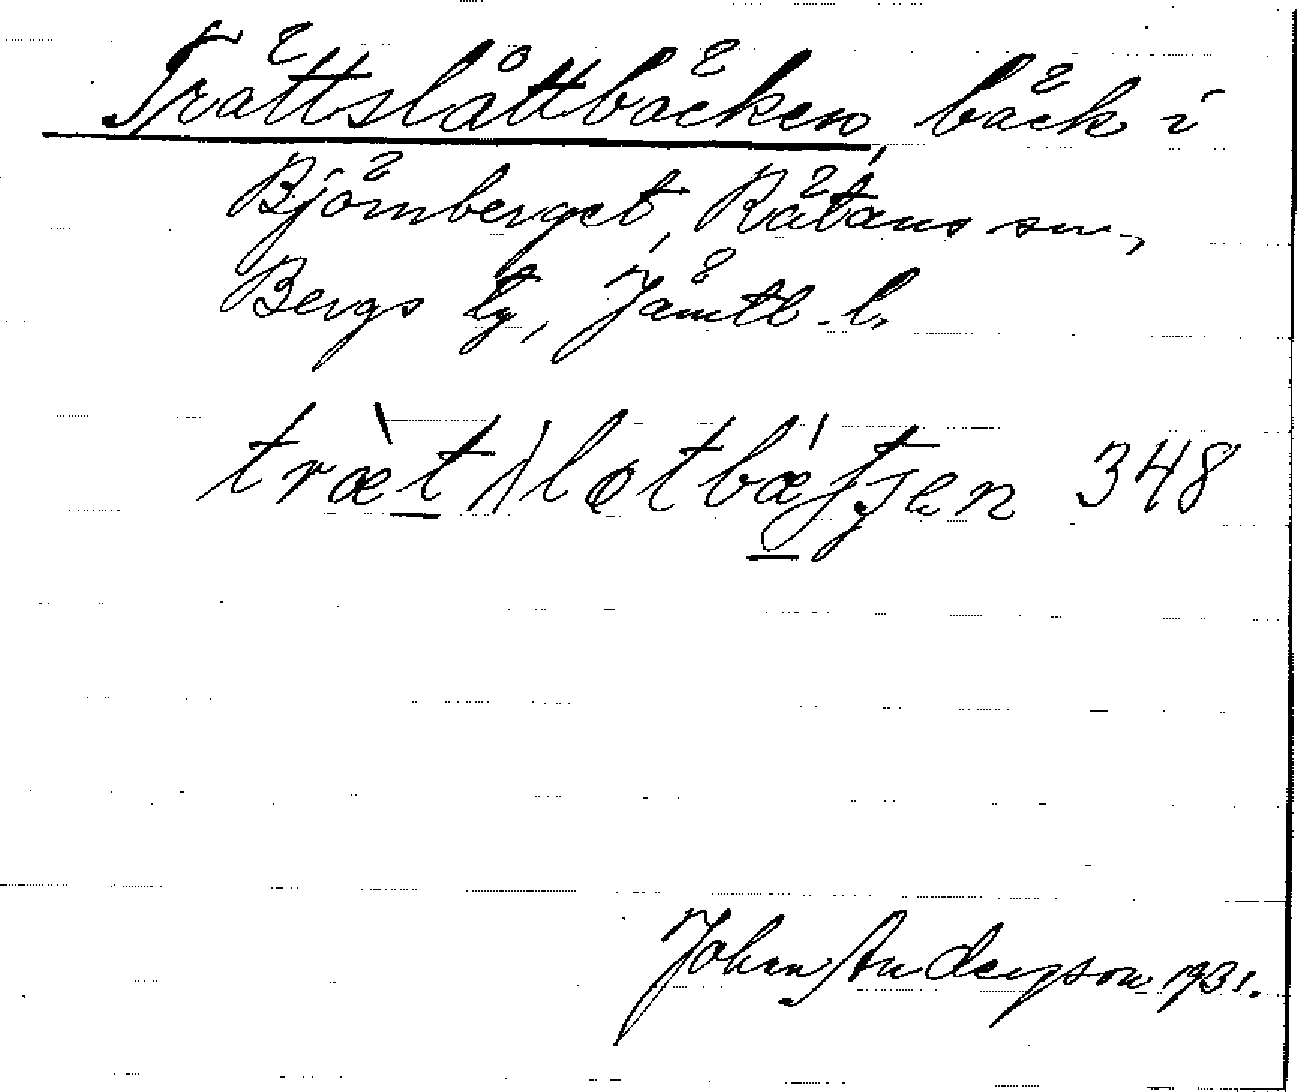 Trättslåttbäcken, bäck i
Björnberget, Rätans sn,
Bergs tg, Jämtl. l.
348
John Anderson 1931.